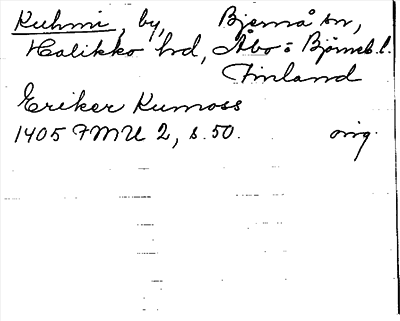 Kuhmi, by, Bjernå sn,
Halikko hd, Åbo = Björneb. l.
Finland
Eriker Kumoss
1405 FMU 2, s. 50. orig.